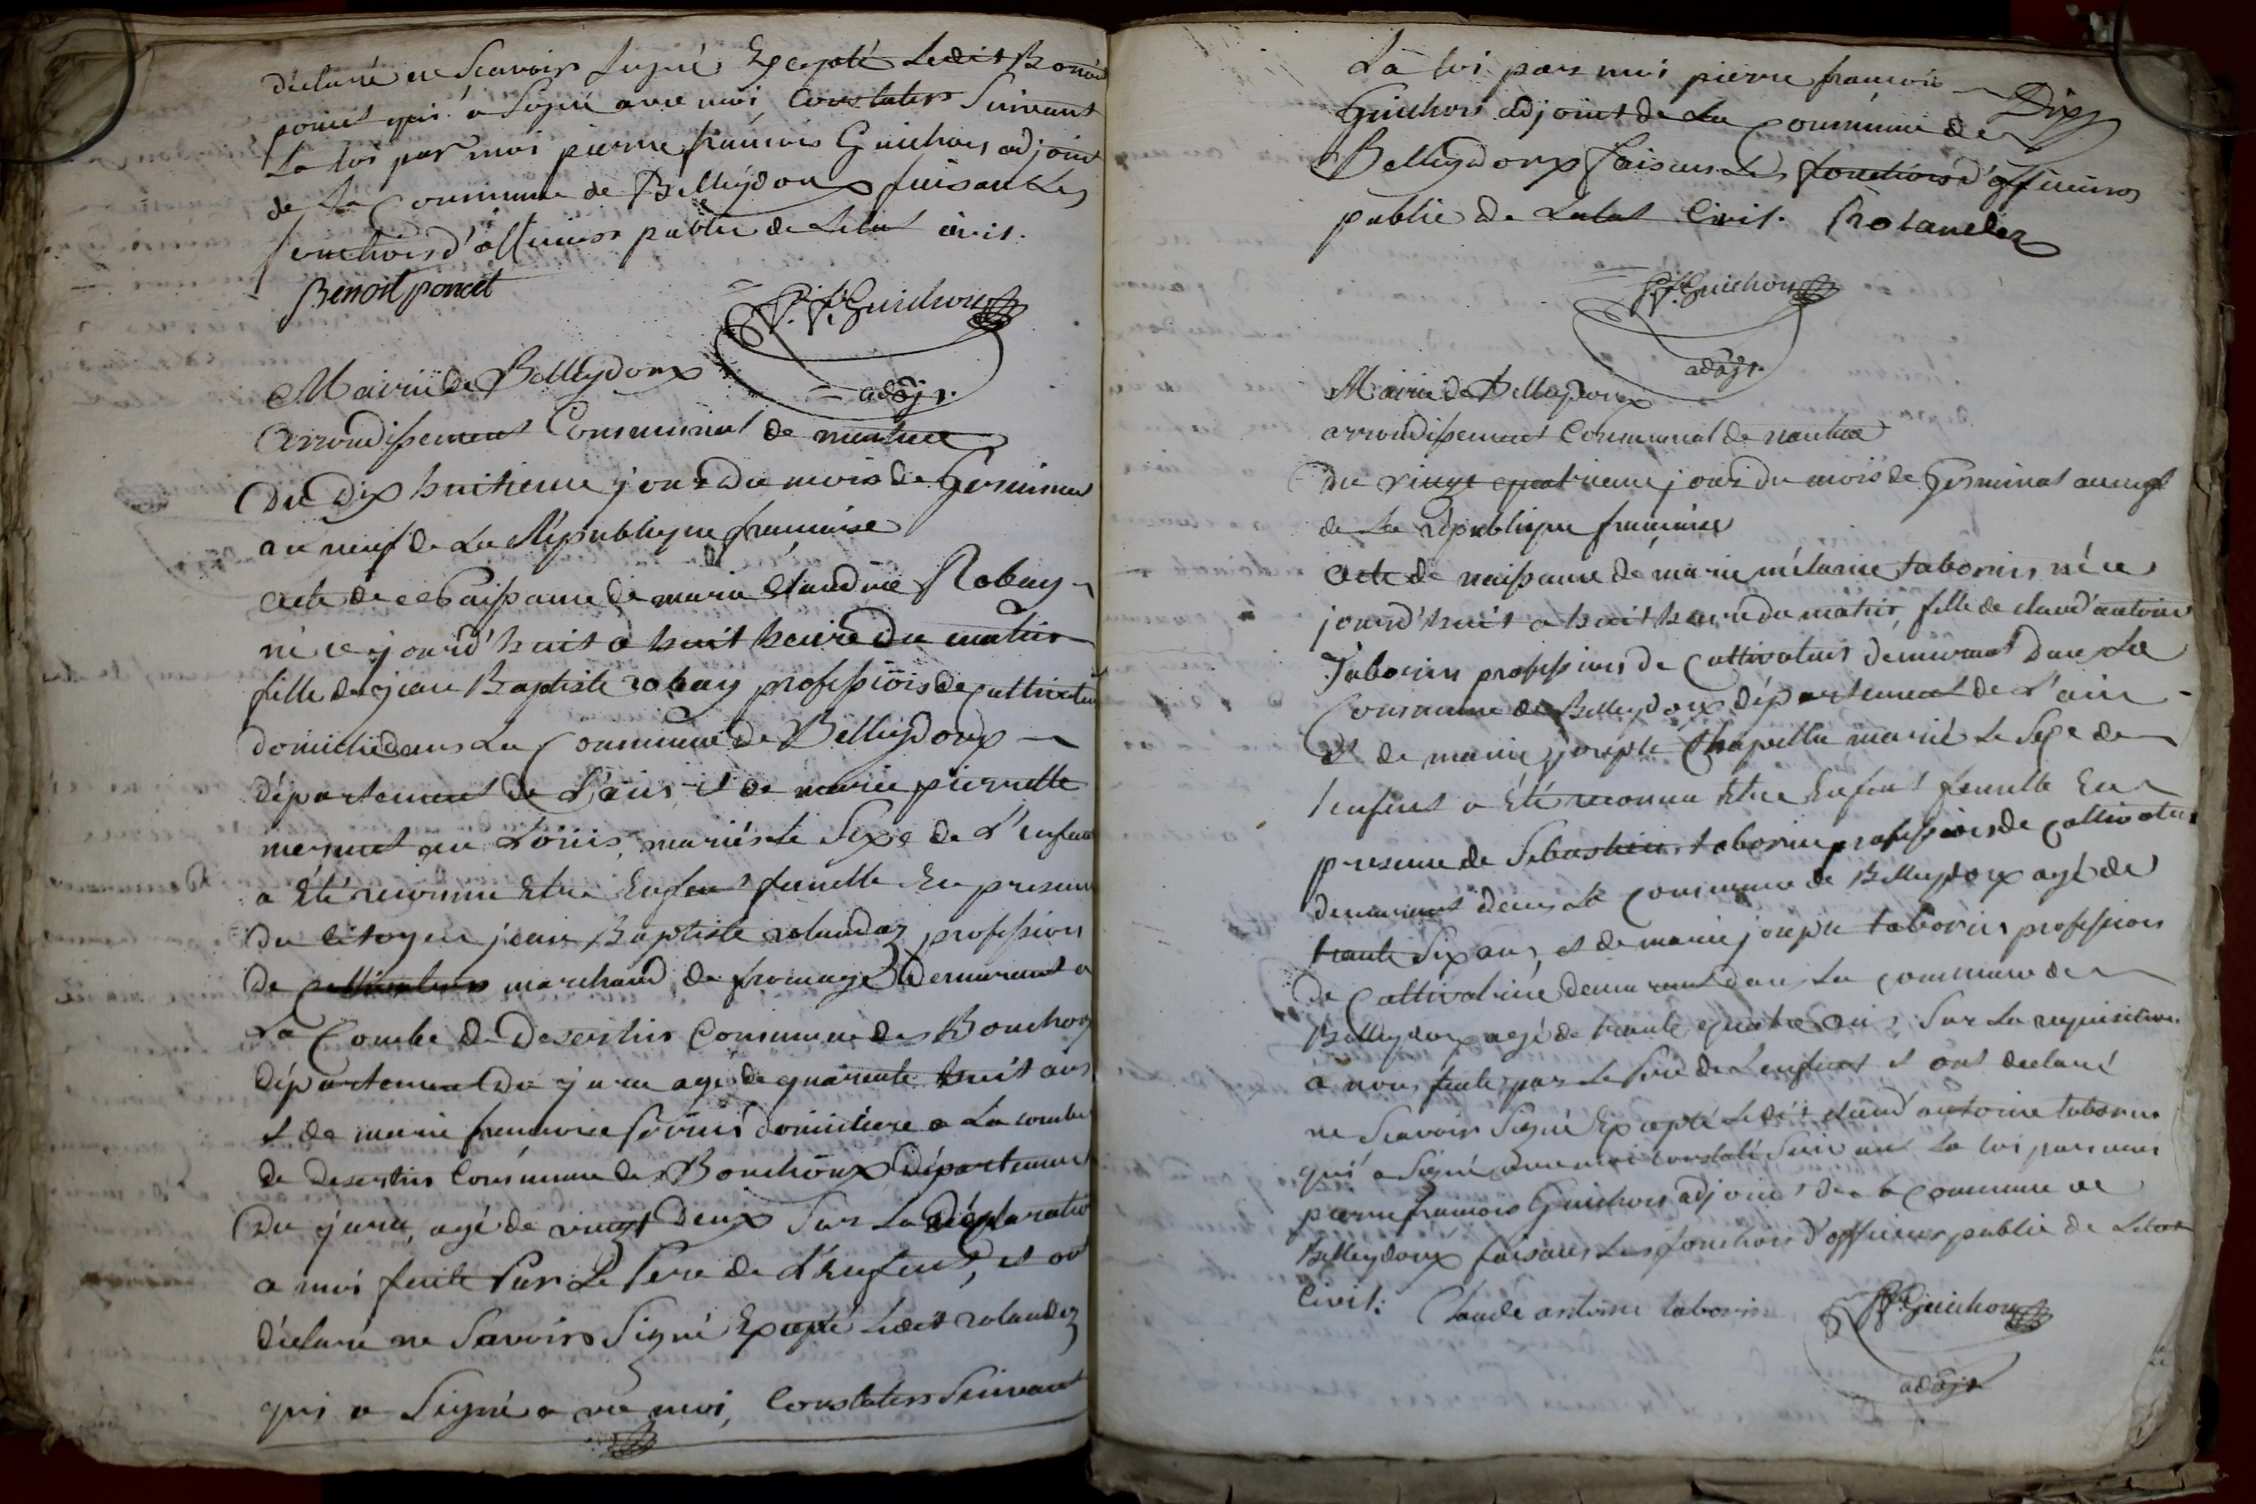 déclaré ne Scavoir Signé Excepté Ledit Benoit
poncet qui a Signé avec moi Constaters Suivant
La loi par moi pierre françois Guichon adjoint
de La Commune de Belleydoux faisant Les
fonctions d'officiers public de Letat civil.
Benoit poncet
P. F. Guichon
adãjt.
Mairie de Belleydoux
Arrondissement Communal de nantua
Du Dix huitieme jour Du mois de Germinal
an neuf de La République francaise
acte de Naissance de marie Claudine Robay
né ce jourd'huit a huit heure du matin
fille de jean Baptiste robay profession de Cultivateur
domicilie dans La Commune de Belleydoux
département de L'ain et de marie pierrette
mermet au Louis, mariés le Sexe de L'enfant
a Eté reconnu Etre Enfant femelle En presence
du Citoyen jean Baptiste rolandez profession
de marchand de fromage demeurant a
La Combe de Desertin Commune des Bouchoux
département Du jura agé de quarente huit ans
et de marie francoise domiciliere a La combe
de desertin Commune des Bouchoux Département
Du jura, agé de vingt Deux Sur La Déclaration
a moi faite Par Le Pere de L'Enfant, et ont
déclaré ne Savoir Signé Excepté Ledit rolandez
qui a Signé avec moi, Constaters Suivant
La loi par moi pierre françois
Dix
Guichon adjoint de La Commune de
Belleydoux faisant Les fonctions d'officiers
public de Letat Civil. Rolandez
P. F. Guichon
adãjt.
Mairie de Belleydoux
arrondissement Communal de nantua
du vingt quatrieme jour du mois de Germinal an neuf
de La république francaise
acte de naissance de marie mélanie taborin né ce
jourd'huit a huit heure du matin, fille de claud'antoine
Taborin profession de Cultivateur demeurant dans La
Commune de Belleydoux département de L'ain
et de marie josephe Chapelle marié Le Sexe de
lenfent a Eté reconnu Etre Enfent femelle En
presence de Sebastien taborin profession de Cultivateur
demeurant dans La Commune de Belleydoux agé de
trante Six ans, et de marie josephe taborin profession
de Cultivatrice demeurant dans La commune de
Belleydoux agé de trante quatre ans, Sur La requisition
a nous faite par Le Pere de Lenfent et ont declaré
ne Scavoir Signé Excepté Ledit claud antoine taborin
qui a Signé avec moi constaté Suivant La loi par moi
pierre francois Guichon adjoint de la Commune de
Belleydoux faisant Les fonctions d'officier public de Letat
Civil. Claude antoine taborin
P. F. Guichon
adãjt